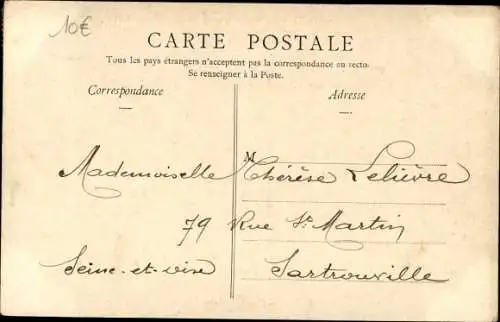 10€
CARTE POSTALE
Tous les pays étrangers n'acceptent pas la correspondance au recto
Se renseigner à la Poste.
Correspondance
Adresse
M
Mademoiselle Thérèse Lelièvre
79 Rue St Martin
Seine-et-oise Sartrouville